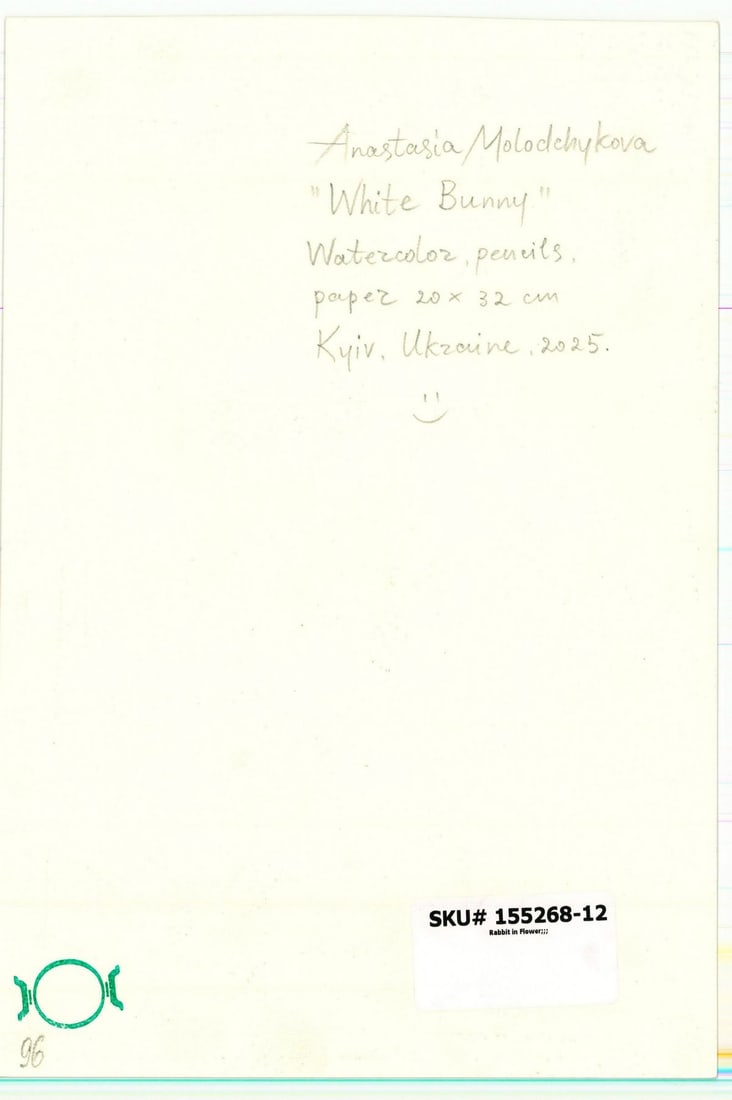 Anastasia Molodchykova
"White Bunny"
Watercolor, pencils,
paper 20 x 32 cm
Kyiv, Ukraine, 2025.
SKU# 155268-12
Rabbit in Flower;;;
96